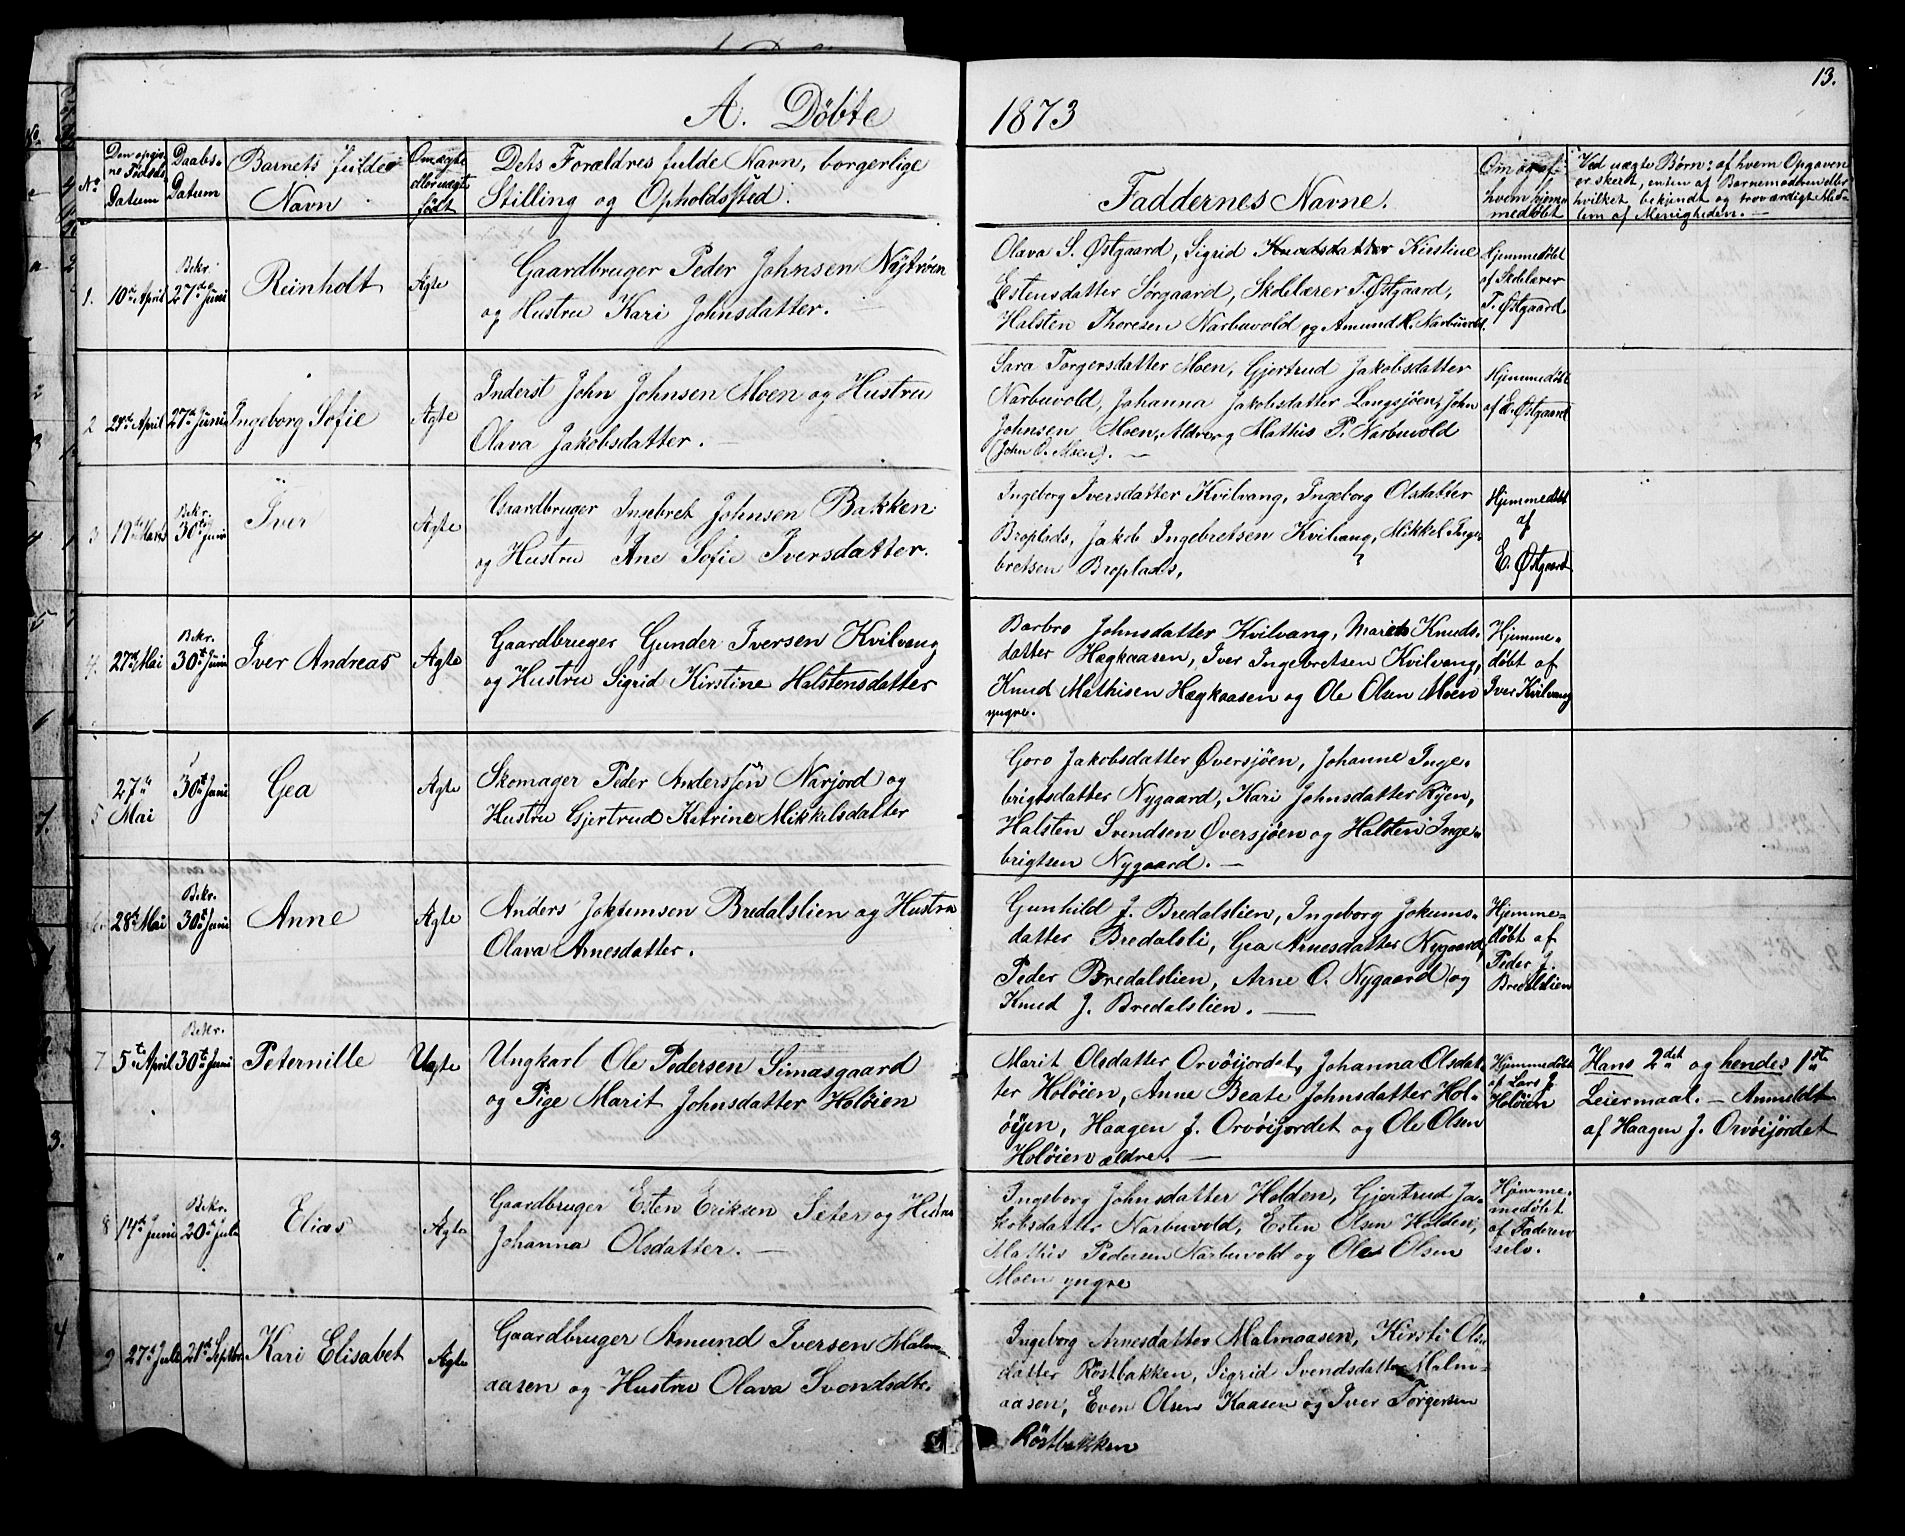 A. Döbte
1873
13.
No
Den opgiv-
ne Fødsels
Datum
Daabs-
Datum
Barnets fulde
Navn
Om ægte
eller uægte
født
Dets Forældres fulde Navn, borgerlige
Stilling og Opholdssted.
Faddernes Navne.
Om og af
hvem hjem-
medöbt
Ved uægte Börn: af hvem Opgaven
er skeet, enten af Barnemoderen eller
hvilket bekjendt og troværdigt Med-
lem af Menigheden.
1.
10de April
Bekr.
27de Juni
Reinholt
Ægte
Gaardbruger Peder Johnsen Nÿtröen
og Hustru Kari Johnsdatter.
Olava S. Østgaard, Sigrid Knudsdatter Kirstine
Estensdatter Sörgaard, Skolelærer T. Østgaard,
Halsten Thoresen Narbuvold og Amund H. Narbuvold.
Hjemmedöbt
af Skolelærer
T. Østgaard
2
April
27de Juni
Ingeborg Sofie
Ægte
Inderst John Johnsen Moen og Hustru
Olava Jakobsdatter. —
Sara Torgersdatter Moen, Gjertrud Jakobsdatter
Narbuvold, Johanna Jakobsdatter Langsjöen, John
Johnsen Moen, og Mathis P. Narbuvold
(John O. Moen). —
Hjemmedöbt
af E. Østgaard
3
19de Marts
Bekr.
30te Juni
Iver
Ægte
Gaardbruger Ingebret Johnsen Bakken
og Hustru Ane Sofie Iversdatter.
Ingeborg Iversdatter Kvilvang, Ingeborg Olsdatter
Broplads, Jakob Ingebretsen Kvilvang, Mikkel Inge-
bretsen Broplads,
Hjemmedöbt
af
E. Østgaard
4.
27de Mai
Bekr.
30te Juni
Iver Andreas
Ægte
Gaardbruger Gunder Iversen Kvilvang
og Hustru Sigrid Kirstine Halstensdatter
Barbro Johnsdatter Kvilvang, Marit Knuds-
datter Hægkaasen, Iver Ingebretsen Kvilvang,
Knud Mathisen Hægkaasen og Ole Olsen Moen
yngre.
Hjemme-
döbt af
Iver Kvilvang
5
27de
Mai
30te Juni
Gea
Ægte
Skomager Peder Anderssen Narjord og
Hustru Gjertrud Katrine Mikkelsdatter
Goro Jakobsdatter Øversjöen, Johanne Inge-
brigtsdatter Nygaard, Kari Johnsdatter Ryen,
Halsten Svendsen Øversjöen og Halsten Inge-
brigtsen Nygaard. —
6.
28de Mai
Bekr.
30te Juni
Anne
Ægte
Anders Jokumsen Bredalslien og Hustru
Olava Arnesdatter.
Gunhild J. Bredalslien, Ingeborg Jokums-
datter Bredalsli, Gea Arnesdatter Nygaard,
Peder Bredalslien, Arne O. Nygaard og
Knud J. Bredalslien. —
Hjemme-
döbt af
Peder J.
Bredalslien
7
5te April
Bekr.
30te Juni
Peternille
Uægte
Ungkarl Ole Pedersen Simasgaard
og Pige Marit Johnsdatter Holöien
Marit Olsdatter Orvöijordet, Johanna Olsdat-
ter Holöien, Anne Beate Johnsdatter Hol-
öijen, Haagen J. Orvöijordet og Ole Olsen
Holöien ældre. —
Hjemmedöbt
af Lars J.
Holöien
Hans 2det og hendes 1ste
Leiermaal. — Anmeldt
af Haagen J. Orvöijordet
8
14de Juni
Bekr.
20de Juli
Elias
Ægte
Gaardbruger Esten Eriksen Seter og Hustru
Johanna Olsdatter. —
Ingeborg Johnsdatter Holden, Gjertrud Ja-
kobsdatter Narbuvold, Esten Olsen Holden,
Mathis Pedersen Narbuvold og Ole Olsen
Moen yngre
Hjemme-
medöbt
af Faderen
selv.
9
27de Juli
21de Septbr.
Kari Elisabet
Ægte
Gaardbruger Amund Iversen Malm-
aasen og Hustru Olava Svendsdtr.
Ingeborg Arnesdatter Malmaasen, Kirsti Ols-
datter Röstbakken, Sigrid Svendsdatter Malm-
aasen, Even Olsen Kaasen og Iver Torgersen
Röstbakken